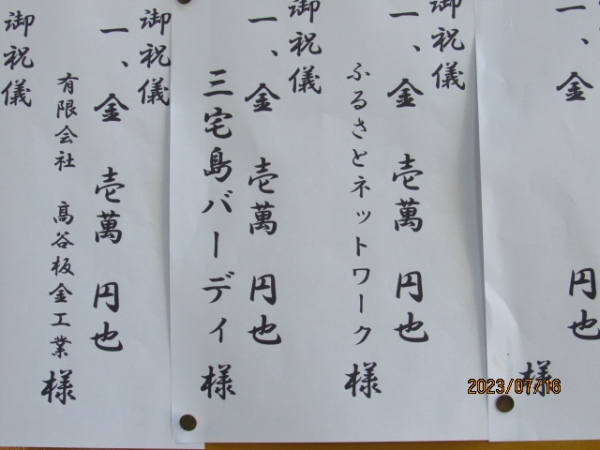 一、金
円也
様
御祝儀
一、金 壱萬 円也
ふるさとネットワーク
様
御祝儀
一、金 壱萬 円也
三宅島バーディ
様
御祝儀
一、金 壱萬 円也
有限会社 髙谷板金工業
様
御祝儀
2023/07/16